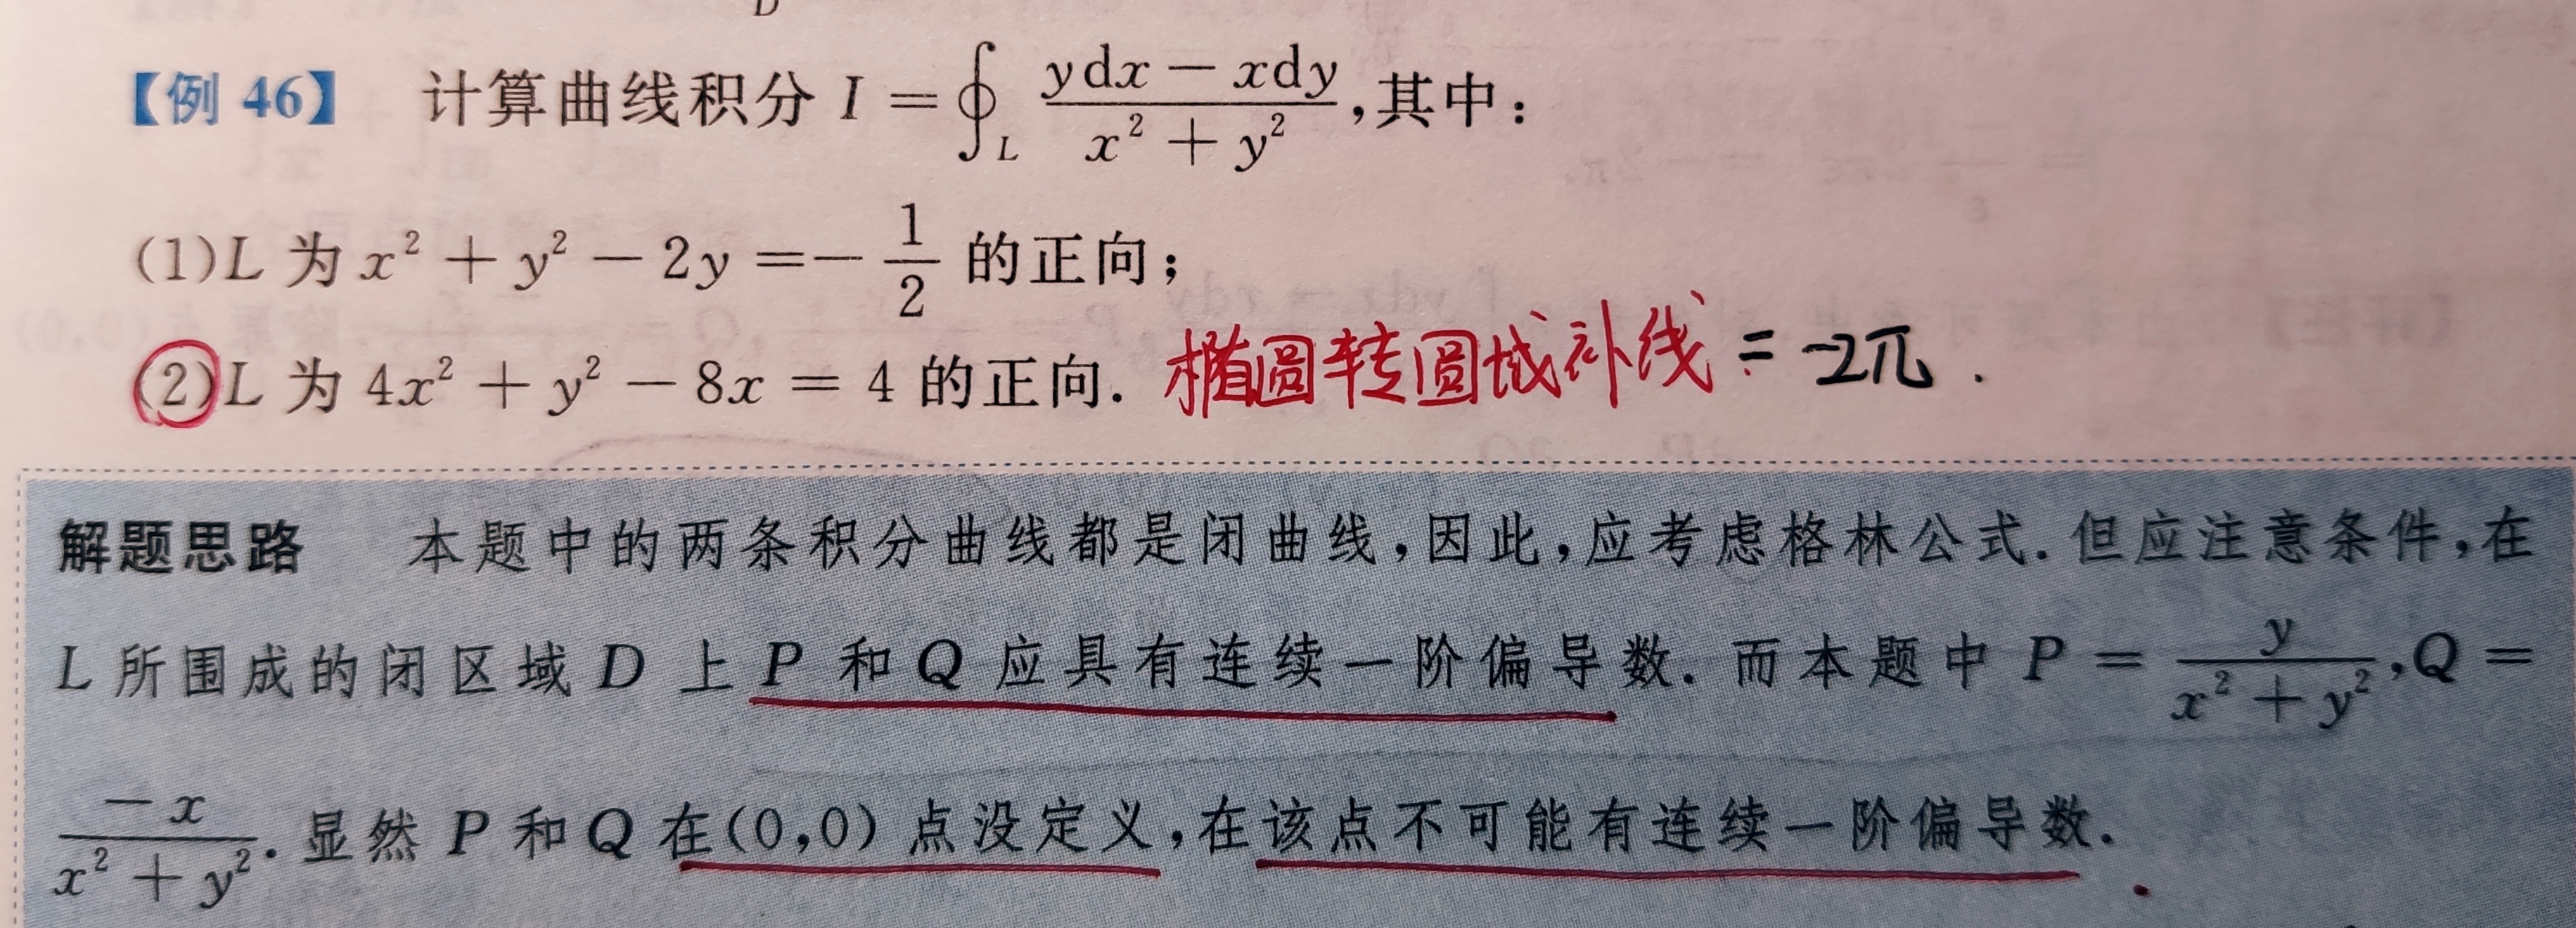 D
【例 46】 计算曲线积分 I = ∮_L (ydx − xdy)/(x² + y²),其中:
(1)L 为 x² + y² − 2y = − 1/2 的正向;
(2)L 为 4x² + y² − 8x = 4 的正向. 椭圆转圆域补线 = -2π .
解题思路 本题中的两条积分曲线都是闭曲线,因此,应考虑格林公式.但应注意条件,在
L 所围成的闭区域 D 上 P 和 Q 应具有连续一阶偏导数. 而本题中 P = y/(x² + y²),Q =
−x/(x² + y²). 显然 P 和 Q 在(0,0) 点没定义,在该点不可能有连续一阶偏导数.